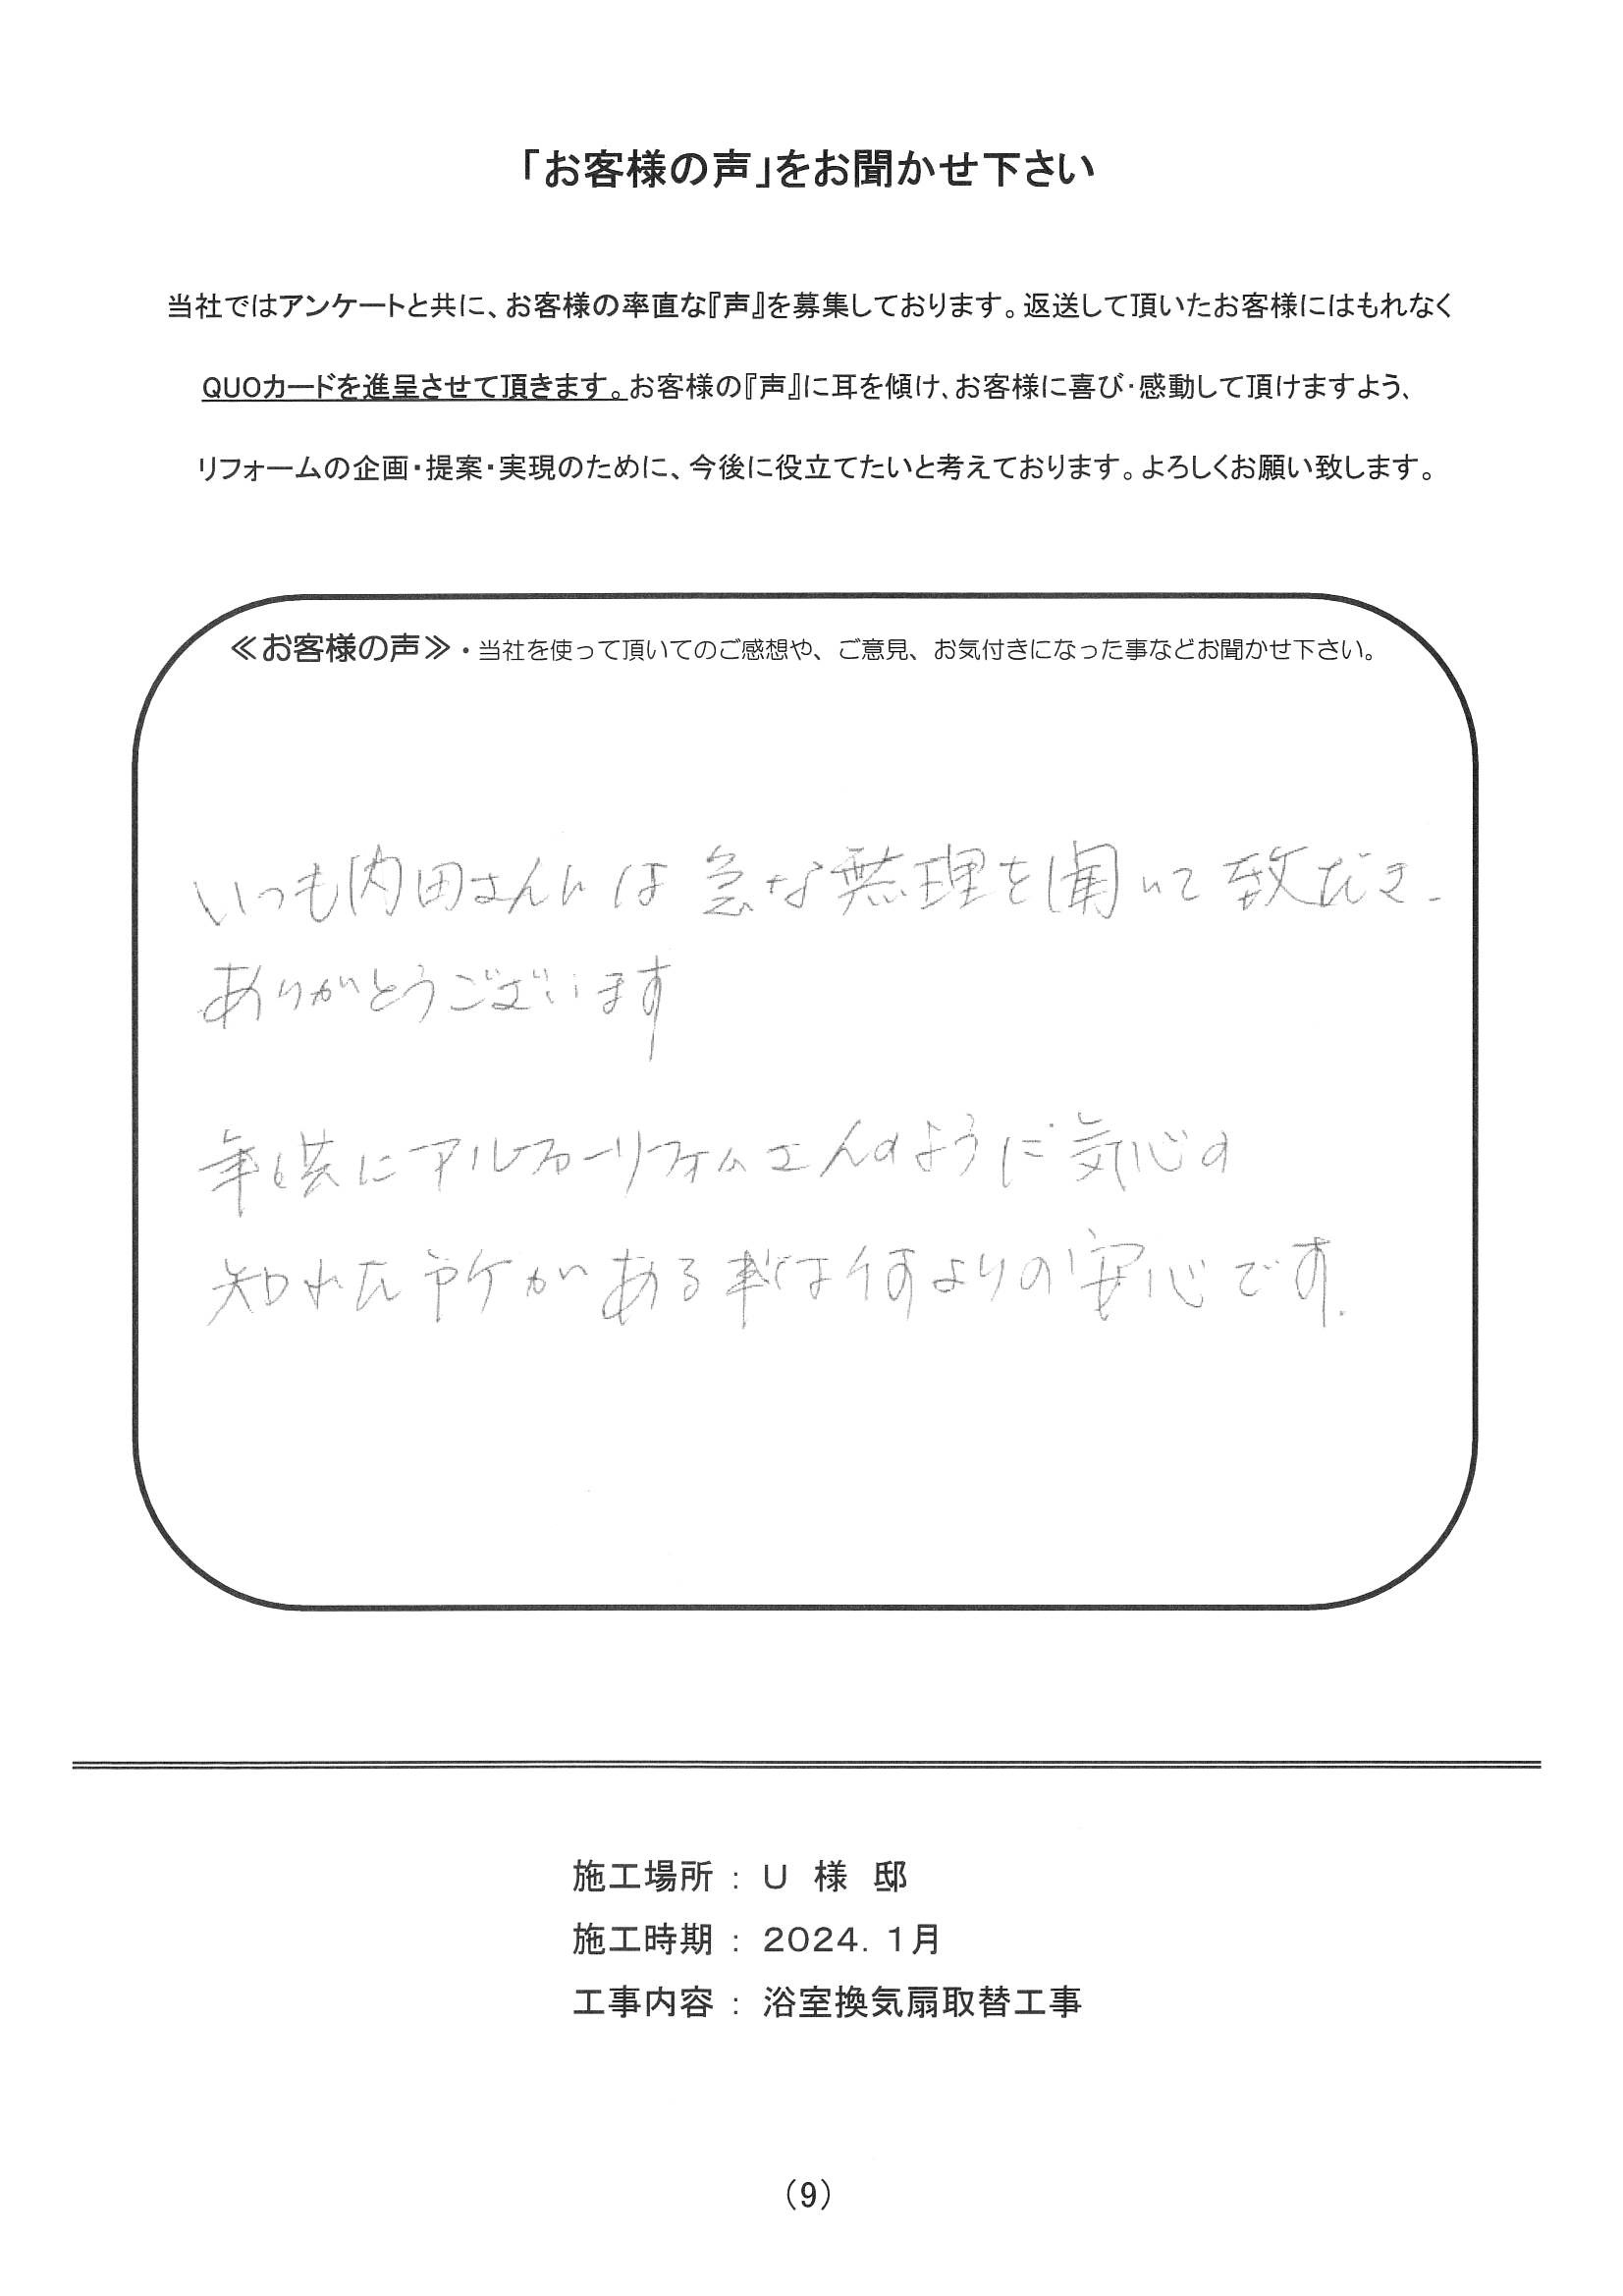 「お客様の声」をお聞かせ下さい
当社ではアンケートと共に、お客様の率直な『声』を募集しております。返送して頂いたお客様にはもれなく
QUOカードを進呈させて頂きます。お客様の『声』に耳を傾け、お客様に喜び・感動して頂けますよう、
リフォームの企画・提案・実現のために、今後に役立てたいと考えております。よろしくお願い致します。
≪お客様の声≫・当社を使って頂いてのご感想や、ご意見、お気付きになった事などお聞かせ下さい。
いつも内田さんには急な無理を聞いて致だき、
ありがとうございます
年と共にアルファーリフォムさんのように気心の
知れた所がある事は何よりの安心です.
施工場所 : U 様 邸
施工時期 : 2024. 1月
工事内容 : 浴室換気扇取替工事
(9)